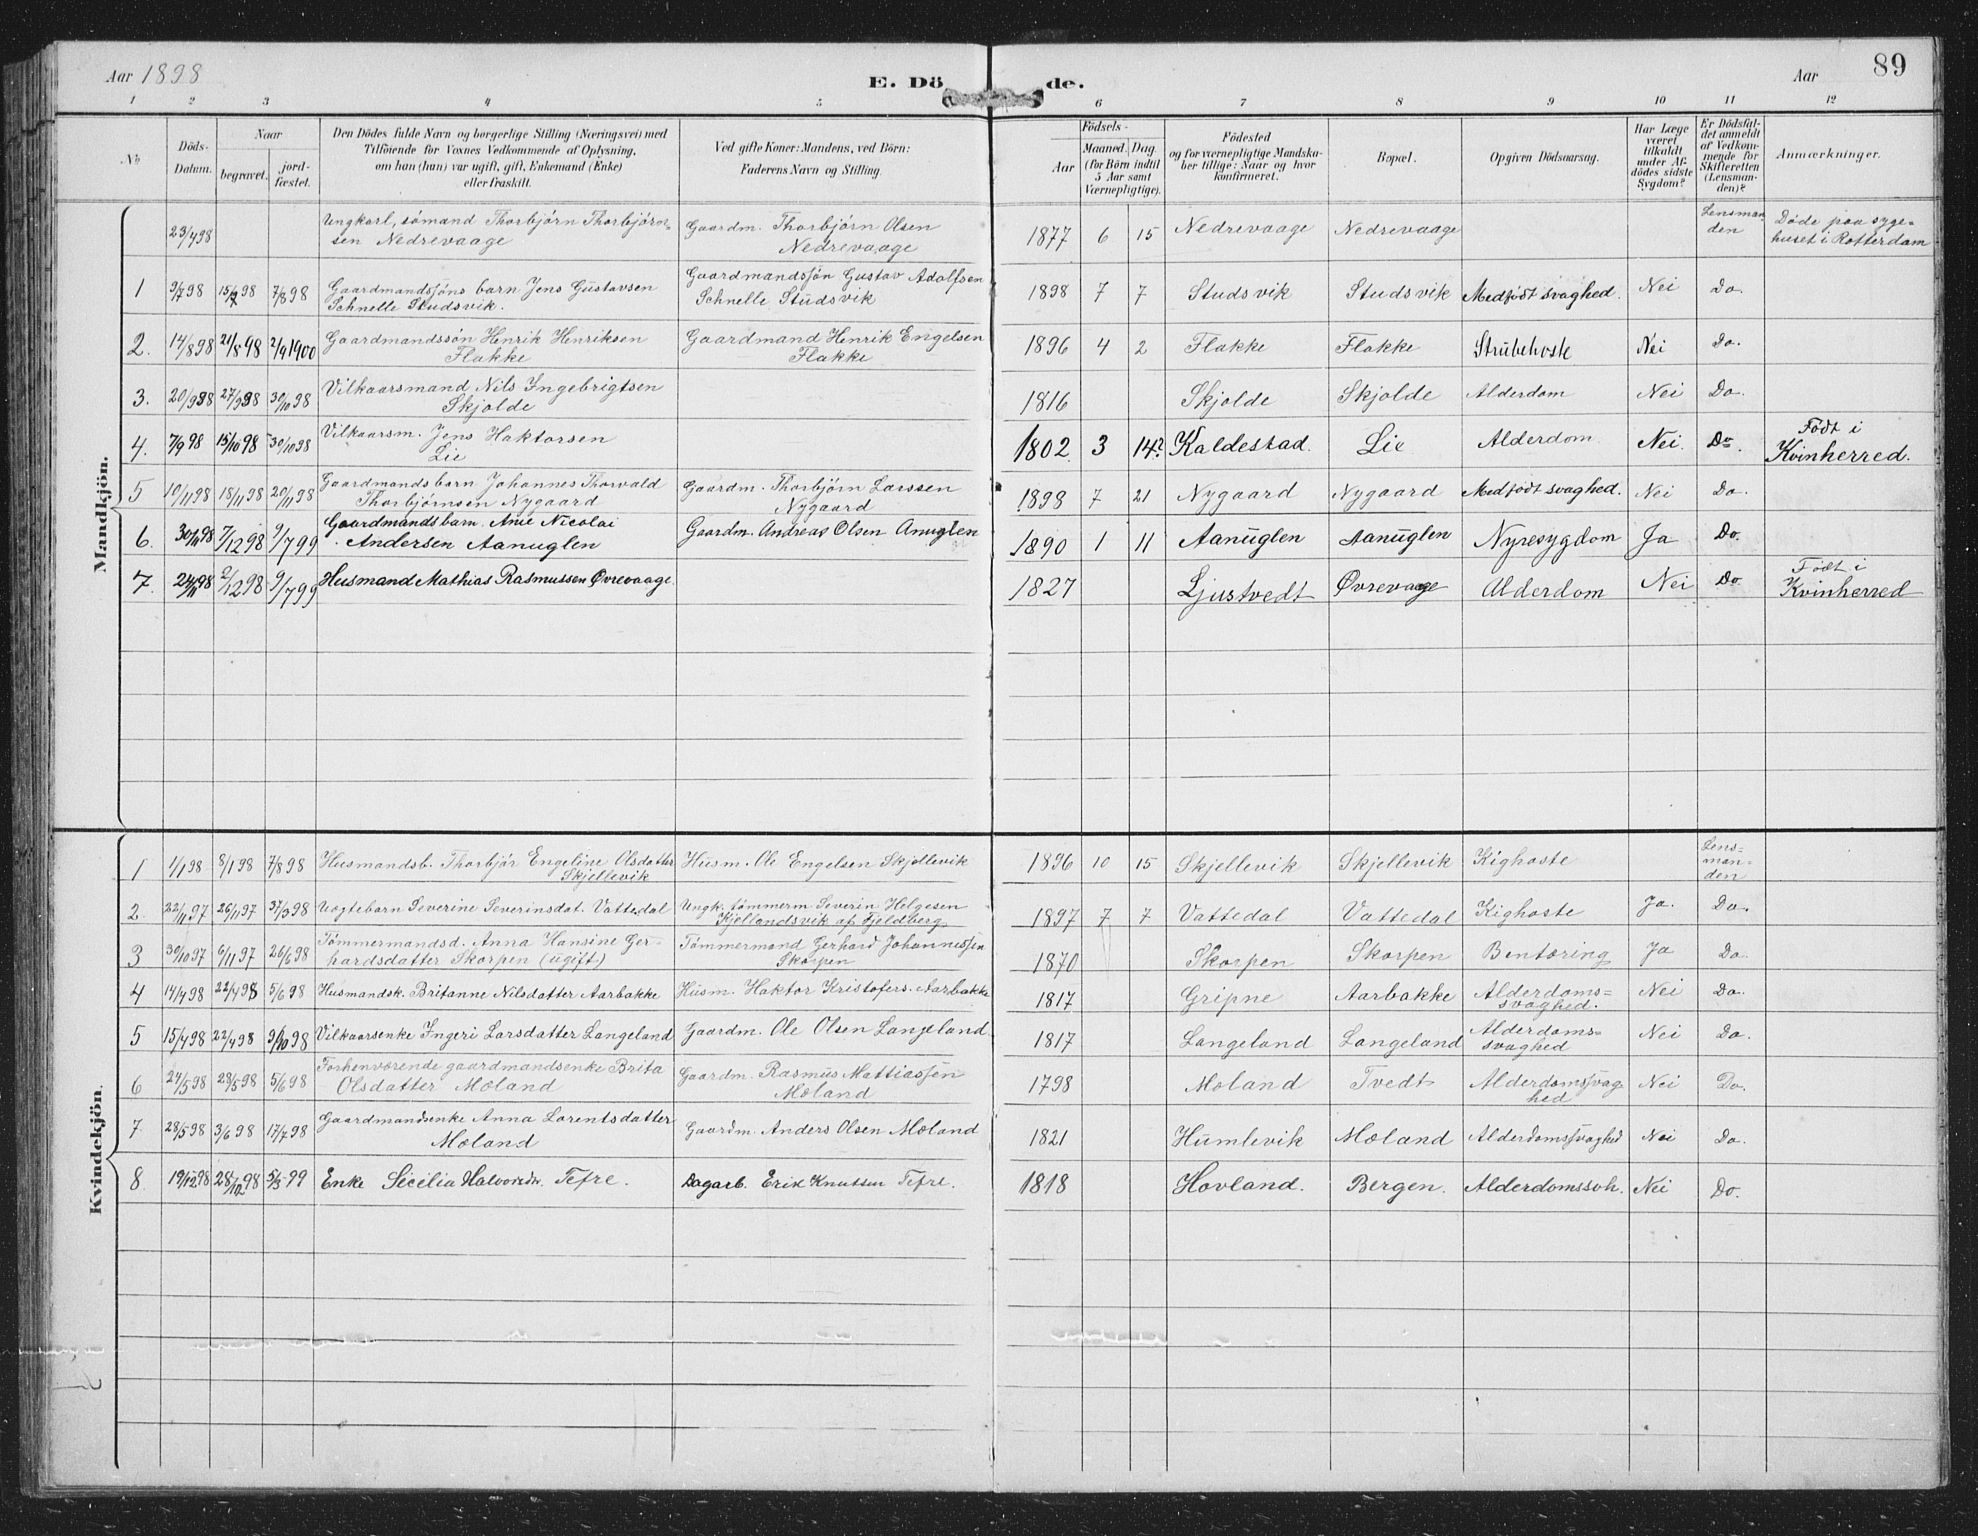 Aar 1898
E. Dö de.
Aar
89
1 2 3 4 5 6 7 8 9 10 11 12
No
Döds-
Datum.
Naar
begravet.
jord-
fæstet.
Den Dödes fulde Navn og borgerlige Stilling (Næringsvei) med
Tilföiende for Voxnes Vedkommende af Oplysning,
om han (hun) var ugift, gift, Enkemand (Enke)
eller fraskilt.
Ved gifte Koner: Mandens, ved Börn:
Faderens Navn og Stilling.
Födsels-
Aar
Maaned. Dag.
(for Börn indtil
5 Aar samt
Værnepligtige).
Födested
og for værnepligtige Mandska-
ber tillige: Naar og hvor
konfirmeret.
Bopæl.
Opgiven Dödsaarsag.
Har Læge
været
tilkaldt
under Af-
dödes sidste
Sygdom?
Er Dödsfal-
det anmeldt
af Vedkom-
mende for
Skifteretten
(Lensman-
den)?
Anmærkninger.
Mandkjön.
23/4 98 Ungkarl, sömand Thorbjörn Thorbjörn-
sen Nedrevaage
Gaardm. Thorbjörn Olsen
Nedrevaage
1877 6 15 Nedrevaage Nedrevaage
Lensman
den
Döde paa syge-
huset i Rotterdam
1 9/7 98 15/7 98 7/8 98 Gaardmandssöns barn Jens Gustavsen
Schnelle Studsvik.
Gaardmandssön Gustav Adolfsen
Schnelle Studsvik
1898 7 7 Studsvik Studsvik Medfödt svaghed. Nei Do.
2. 14/8 98 21/8 98 2/9 1900 Gaardmandssön Henrik Henriksen
Flakke
Gaardmand Henrik Engelsen
Flakke
1896 4 2 Flakke Flakke Strubehoste Nei Do.
3. 20/9 98 27/9 98 30/10 98 Vilkaarsmand Nils Ingebrigtsen
Skjolde
1816 Skjolde Skjolde Alderdom Nei Do.
4. 7/9 98 15/10 98 30/10 98 Vilkaarsm. Jens Haktorsen
Lie
1802 3 14? Kaldestad. Lie Alderdom. Nei. Do.
Födt i
Kvinherred.
5 10/11 98 18/11 98 20/11 98 Gaardmandsbarn Johannes Thorvald
Thorbjörnsen Nygaard
Gaardm. Thorbjörn Larssen
Nygaard
1898 7 21 Nygaard Nygaard Medfödt svaghed. Nei Do.
6. 30/11 98 7/12 98 9/7 99 Gaardmandsbarn. Amie Nicolai
Andersen Aanuglen
Gaardm. Andreas Olsen Anuglen
1890 1 11 Aanuglen Aanuglen Nyresygdom Ja Do.
7. 24/11 98 2/12 98 9/7 99 Husmand Mathias Rasmussen Øvrevaage.
1827 Ljustvedt Øvrevaage Alderdom Nei Do
Födt i
Kvinherred
Kvindekjön.
1 1/1 98 8/1 98 7/8 98 Husmandsb. Thorbjör Engeline Olsdatter
Skjellevik
Husm. Ole Engelsen Skjellevik
1896 10 15 Skjellevik Skjellevik Kighoste
Lens-
man-
den
2. 22/11 97 26/11 97 31/3 98 Uegtebarn Severine Severinsdat. Vattedal
Ungk. tömmerm Severin Helgesen
Kjellandsvik af Fjeldberg
1897 7 7 Vattedal Vattedal Kighoste Ja. Do.
3 30/10 97 6/11 97 26/6 98 Tömmermandsd. Anna Hansine Ger-
hardsdatter Skorpen (ugift)
Tömmermand Gerhard Johannessen
Skorpen
1870 Skorpen Skorpen Bentæring Ja Do.
4 14/4 98 22/4 98 5/6 98 Husmandsk. Britanne Nilsdatter Aarbakke Husm. Haktor Kristofers. Aarbakke
1817 Gripne Aarbakke Alderdoms-
svaghed. Nei Do.
5 15/4 98 22/4 98 9/10 98 Vilkaarsenke Ingeri Larsdatter Langeland Gaardm. Ole Olsen Langeland
1817 Langeland Langeland Alderdoms-
svaghed Nei Do.
6 24/5 98 28/5 98 5/6 98 Forhenværende gaardmandsenke Brita
Olsdatter Mæland
Gaardm. Rasmus Mattiassen
Mæland
1798 Mæland Tvedt Alderdomssvag
hed Nei Do.
7 28/5 98 3/6 98 17/7 98 Gaardmandsenke Anna Lorentsdatter
Mæland
Gaardm. Anders Olsen Mæland
1821 Humlevik Mæland Alderdomssvaghed Nei Do.
8. 19/12 98 28/12 98 5/3 99 Enke Sicilia Halvorsdr. Tefre. Dagarb. Erik Knutsen Tefre.
1818 Hovland. Bergen. Alderdomssvh. Nei Do.